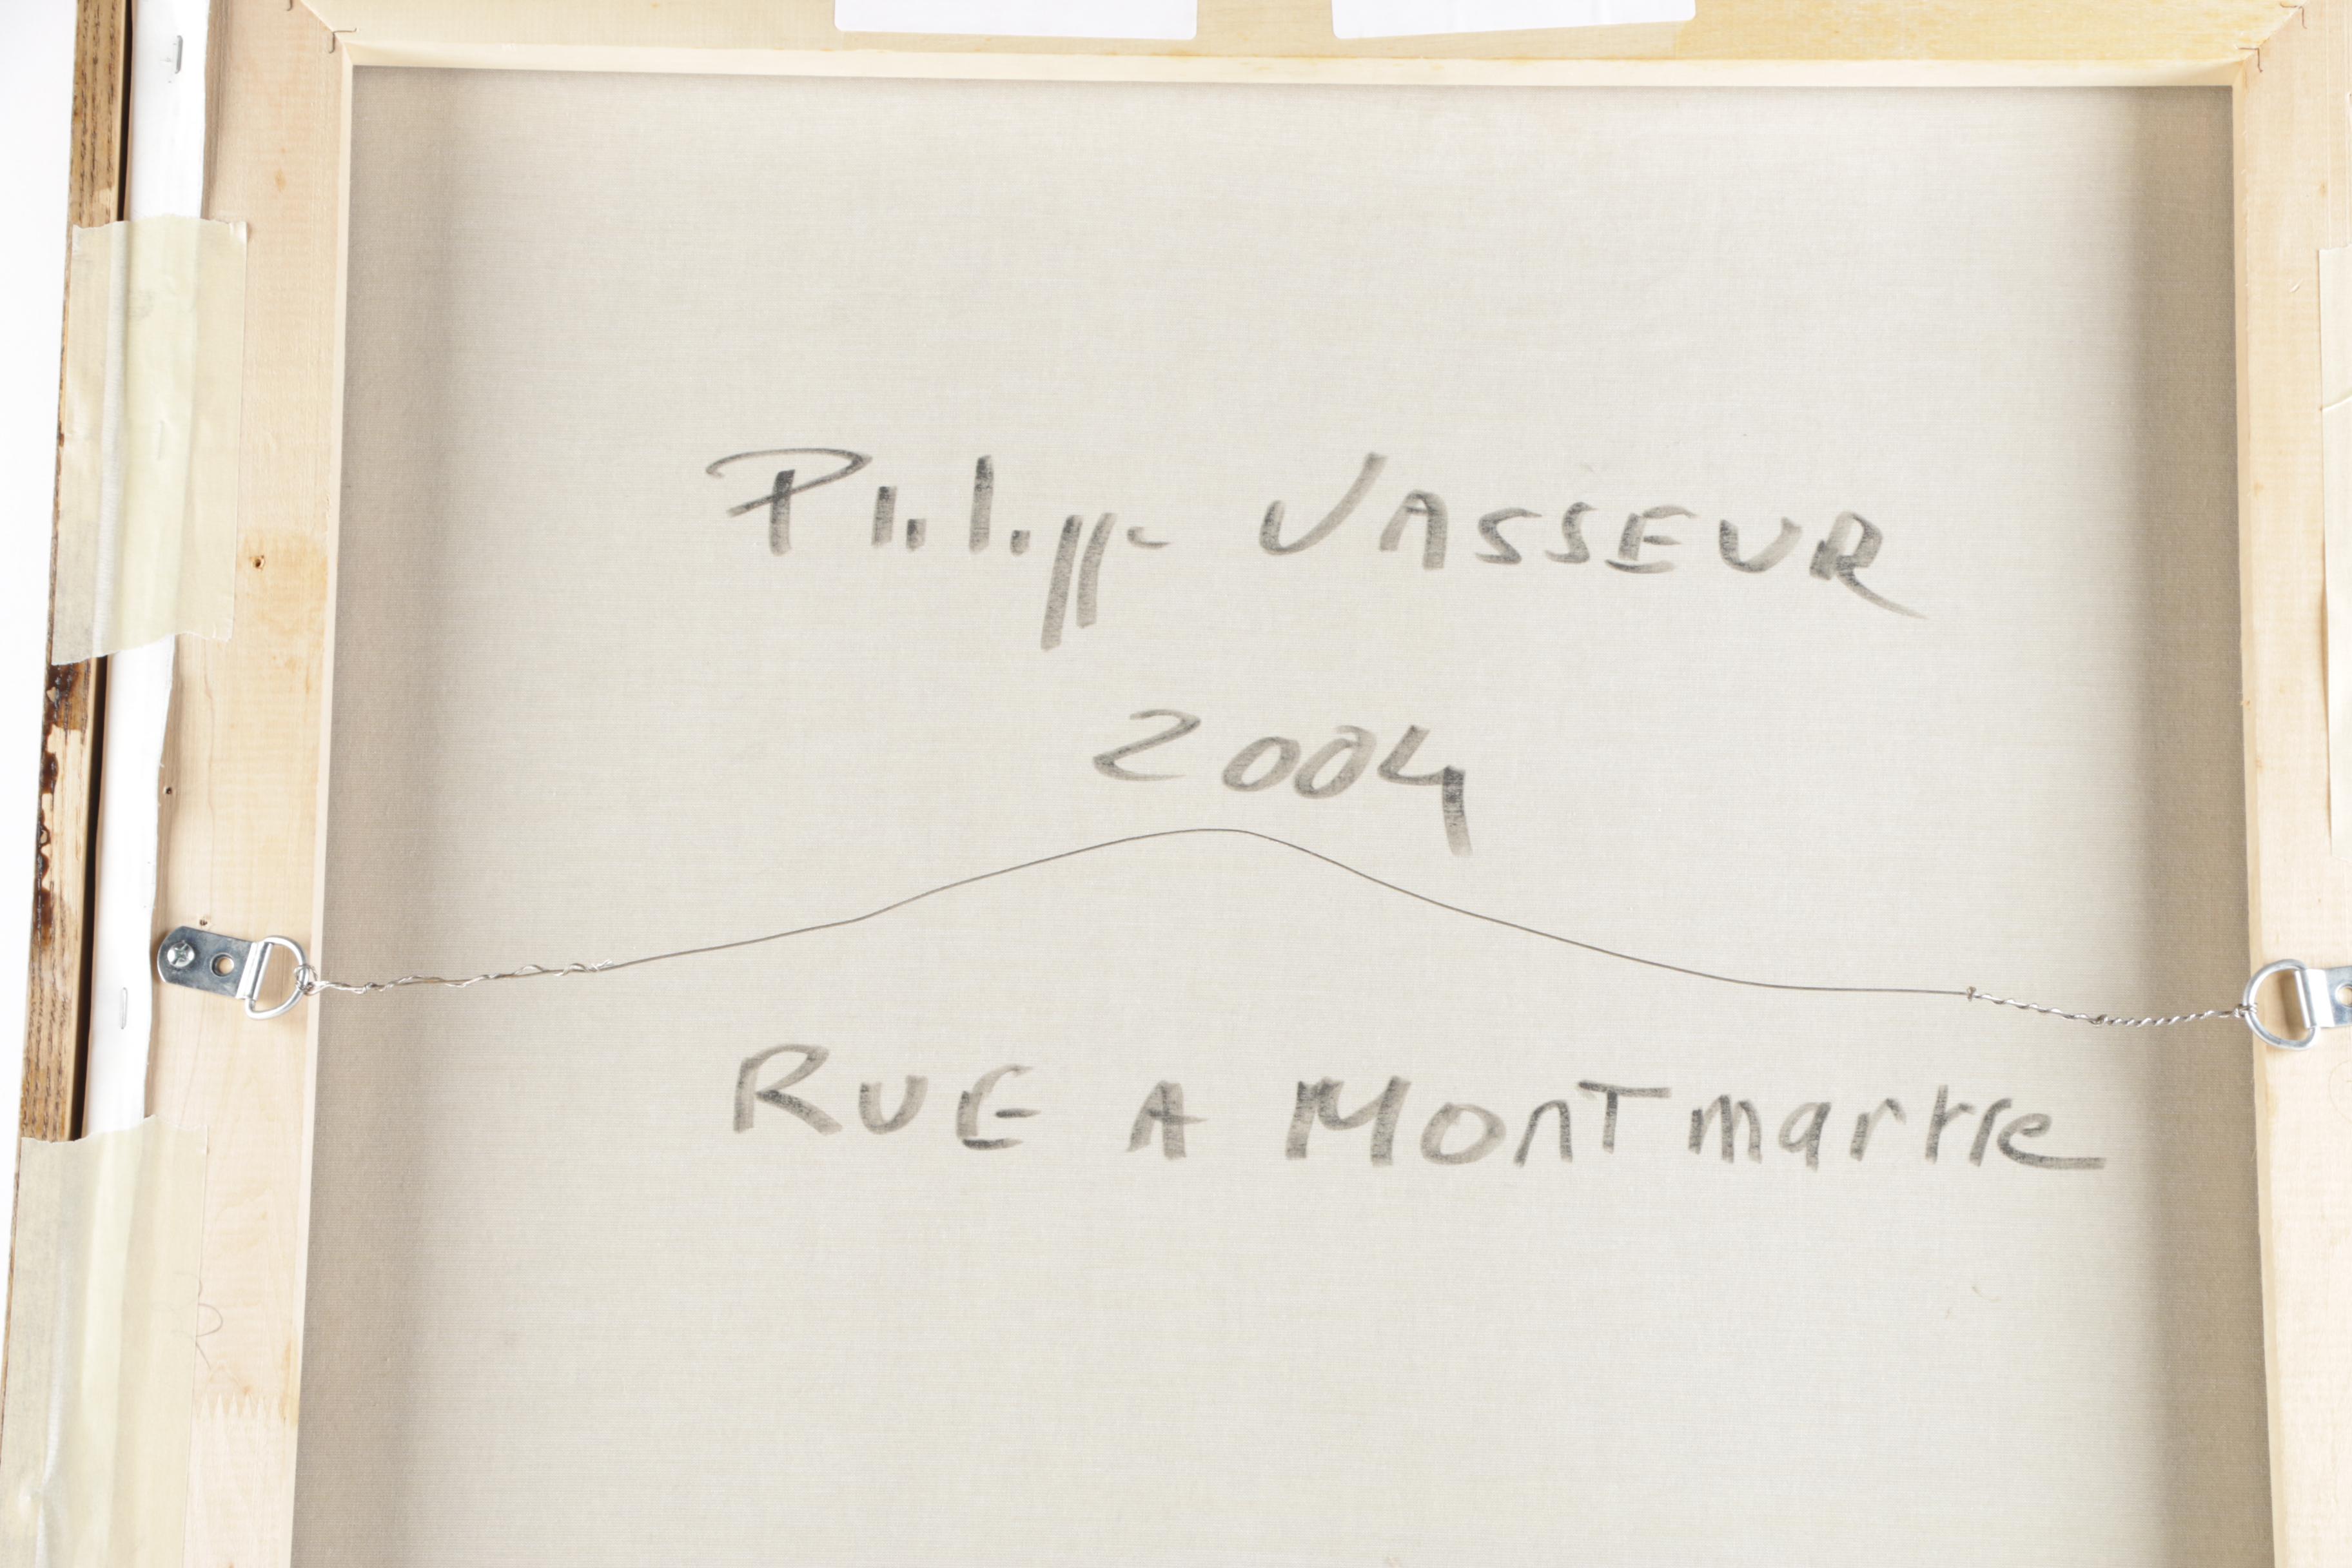 Philippe VASSEUR
2004
RUE A MONTmartre